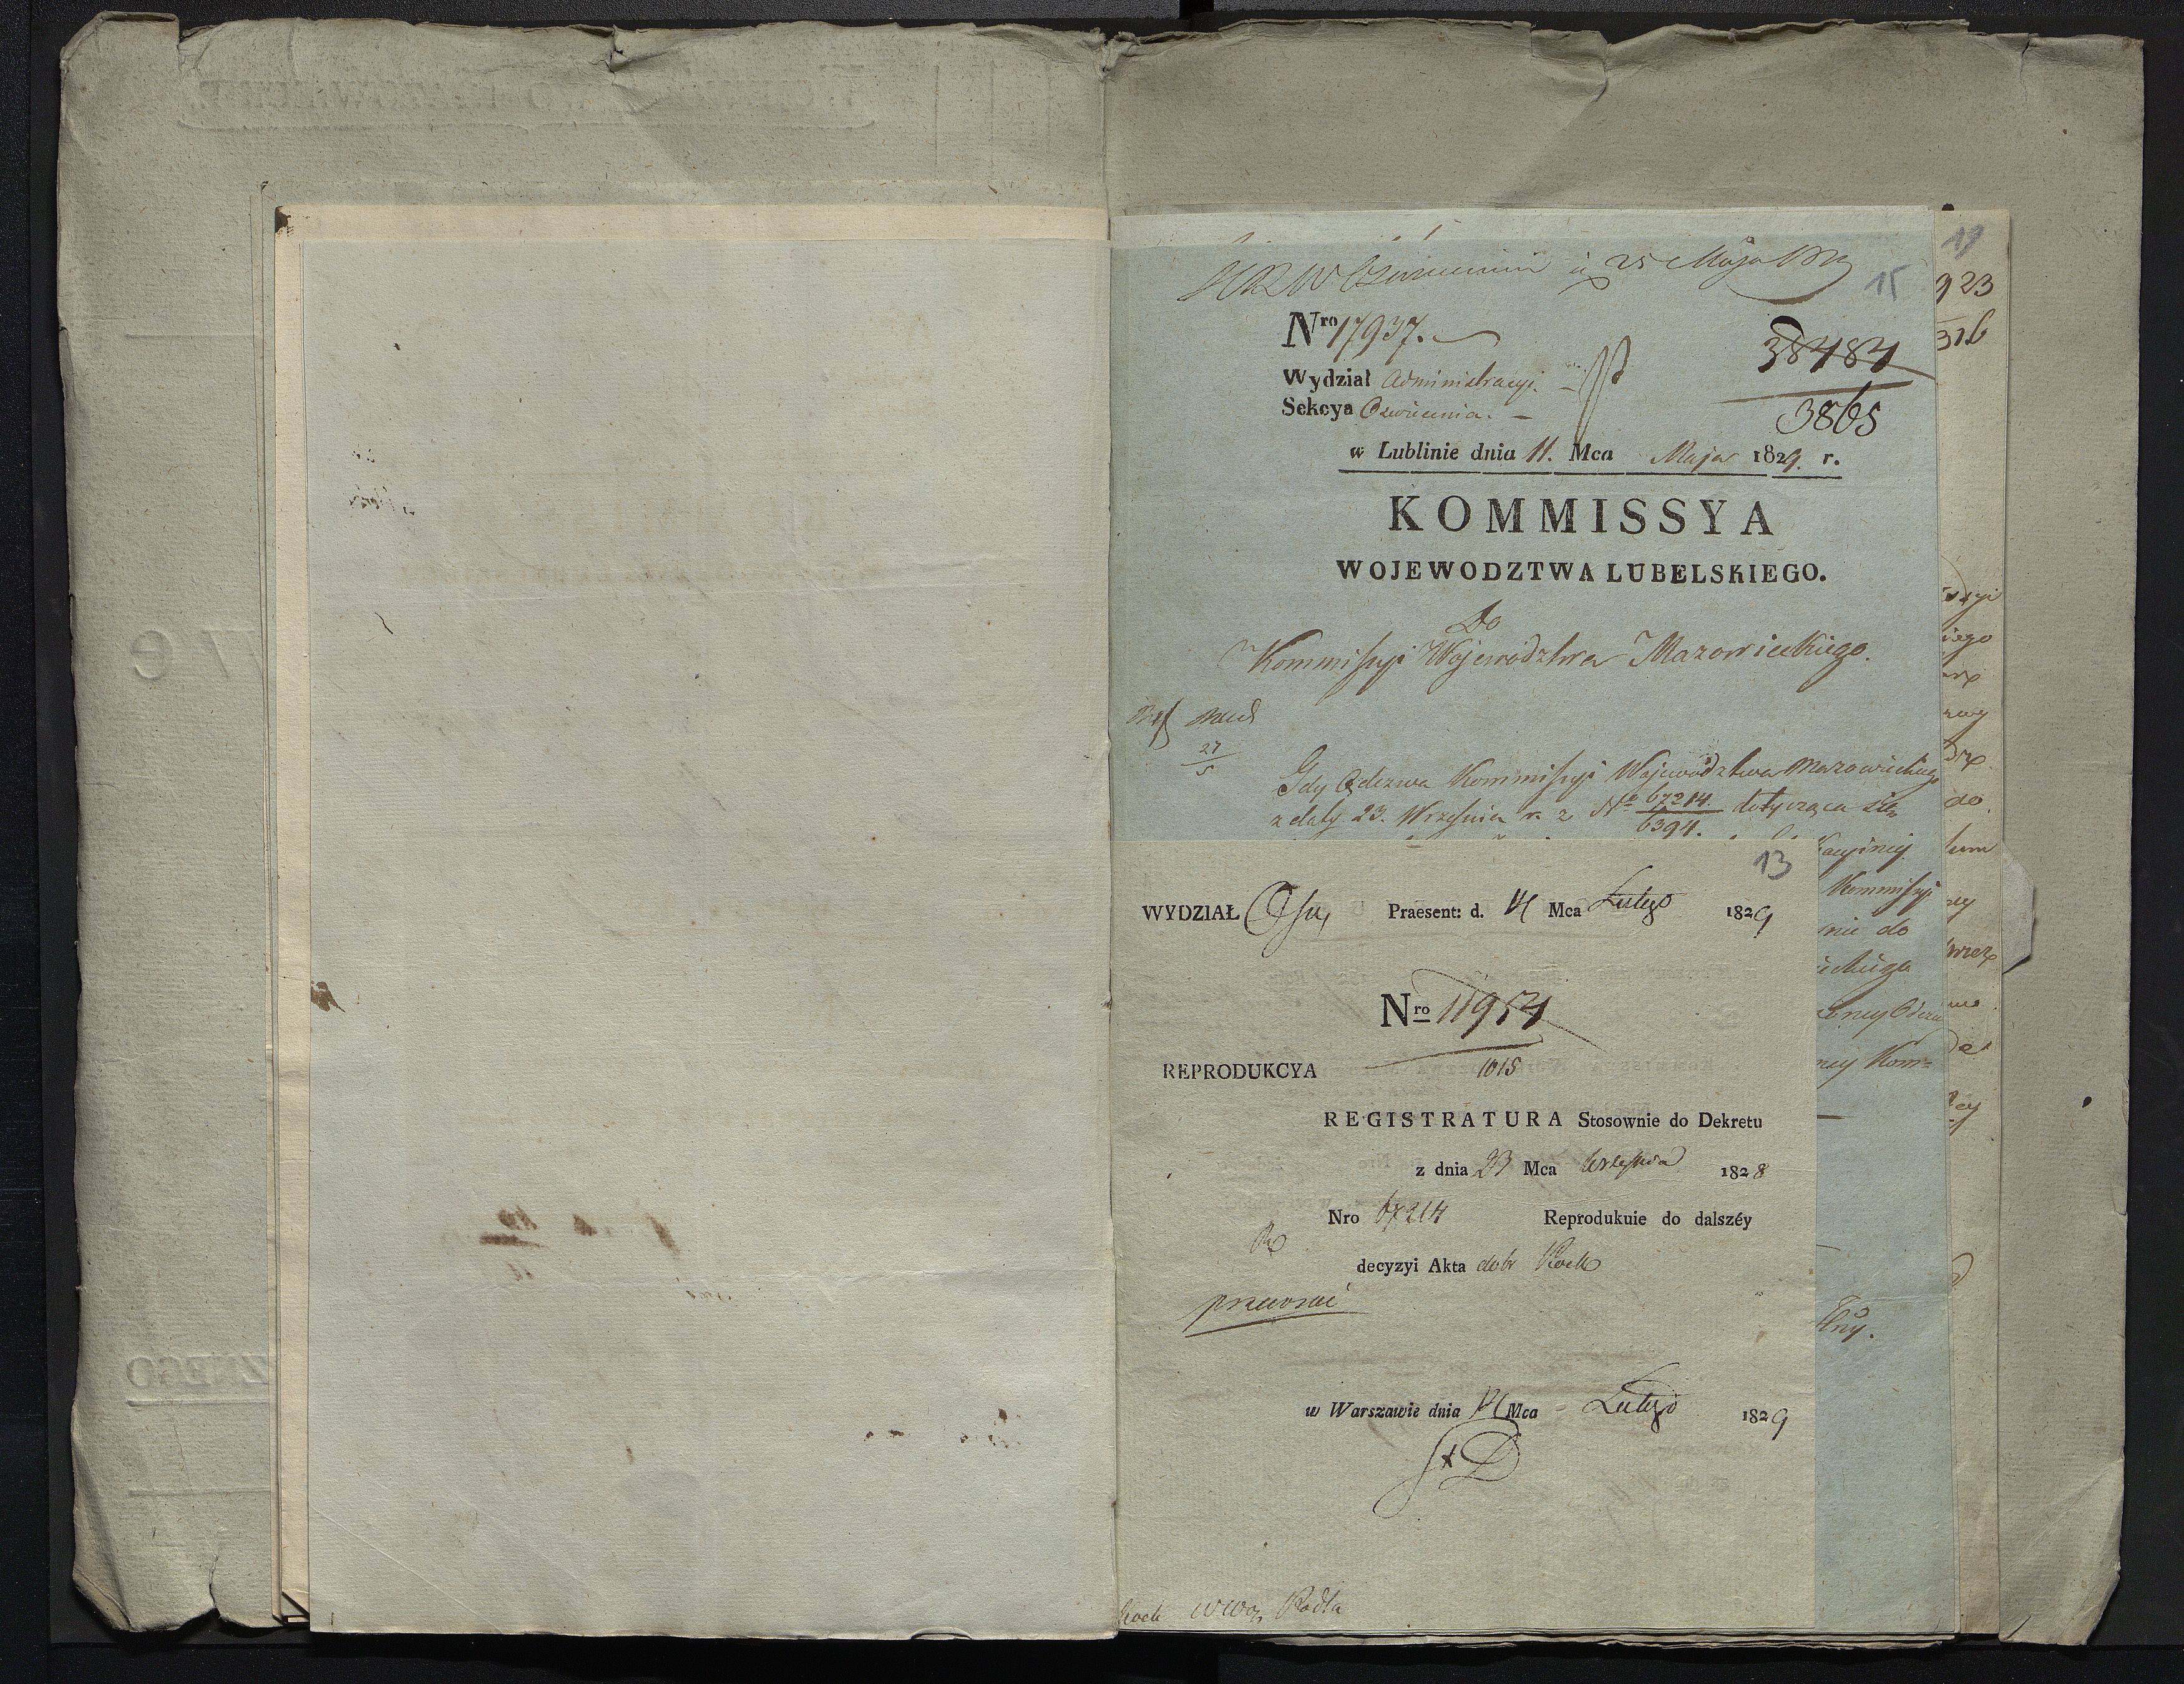 15
25 Maja
Nro 17937.
38484
3865
Wydział Administracyi.
Sekcya Oswiecenia.
w Lublinie dnia 11. Mca Maja 1829. r.
KOMMISSYA
WOJEWODZTWA LUBELSKIEGO.
Do
Kommissyi Województwa Mazowieckiego.
27
5
Gdy Odezwa Kommissyi Województwa Mazowieckiego
z daty 23. Września r. z No 67214. dotycząca się
6394.
Kommissyi
nie do
ney Kom=
13
WYDZIAŁ Praesent: d. 14 Mca Lutego 1829
Nro 11954
1015
REPRODUKCYA
REGISTRATURA Stosownie do Dekretu
z dnia 23 Mca Września 1828
Nro 67214 Reprodukuie do dalszéy
decyzyi Akta dobr Kock
w Warszawie dnia 14 Mca Lutego 1829
Kock
19
923
316
iego
do